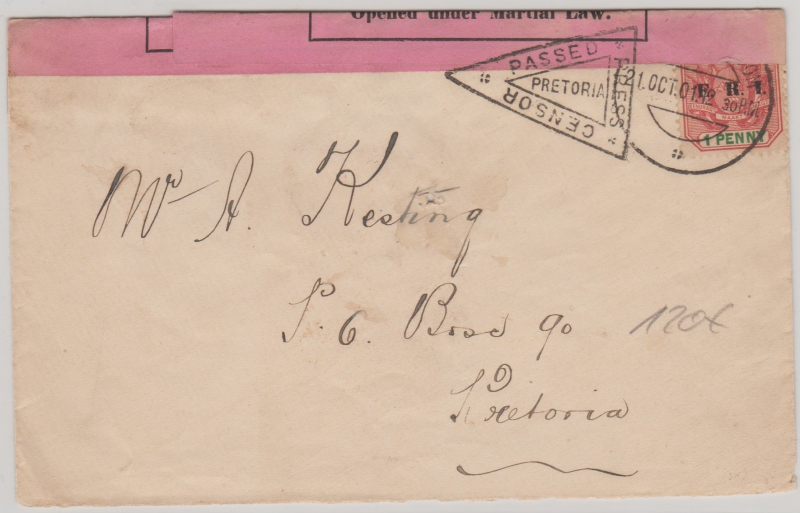 Opened under Martial Law.
PASSED
PRESS
CENSOR
PRETORIA
21.OCT.01
30PM
E. R. I.
1 PENNY
Mr A. Kesting
P. O. Box 90
Pretoria